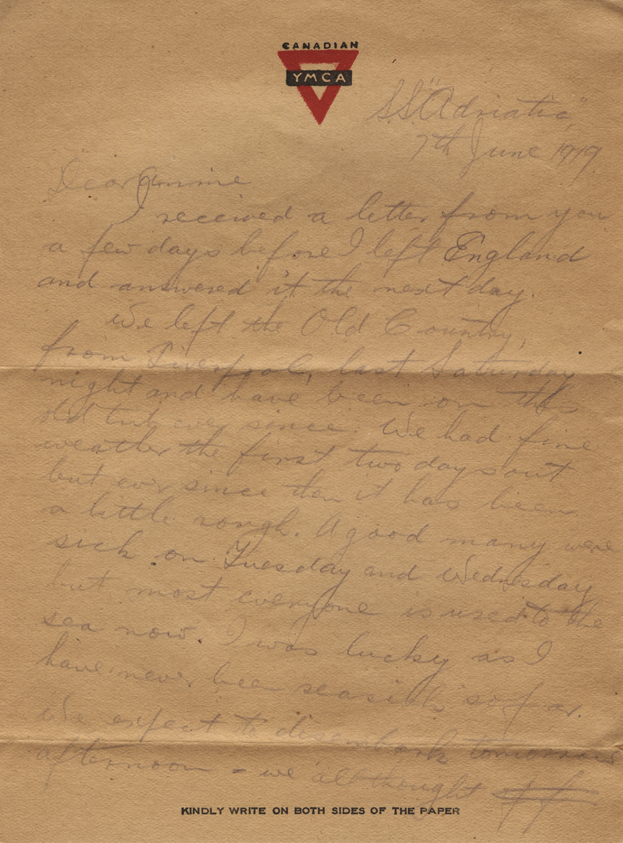 CANADIAN
YMCA
S.S. "Adriatic"
7th June 1919.
Dear Annie
I received a letter from you
a few days before I left England
and answered it the next day.
We left the Old Country,
from Liverpool, last Saturday
night and have been on this
old tub ever since. We had fine
weather the first two days out
but ever since then it has been
a little rough. A good many were
sick on Tuesday and Wednesday
but most everyone is used to the
sea now. I was lucky as I
have never bee seasick so far.
We expect to disembark tomorrow
afternoon - we all thought
KINDLY WRITE ON BOTH SIDES OF THE PAPER